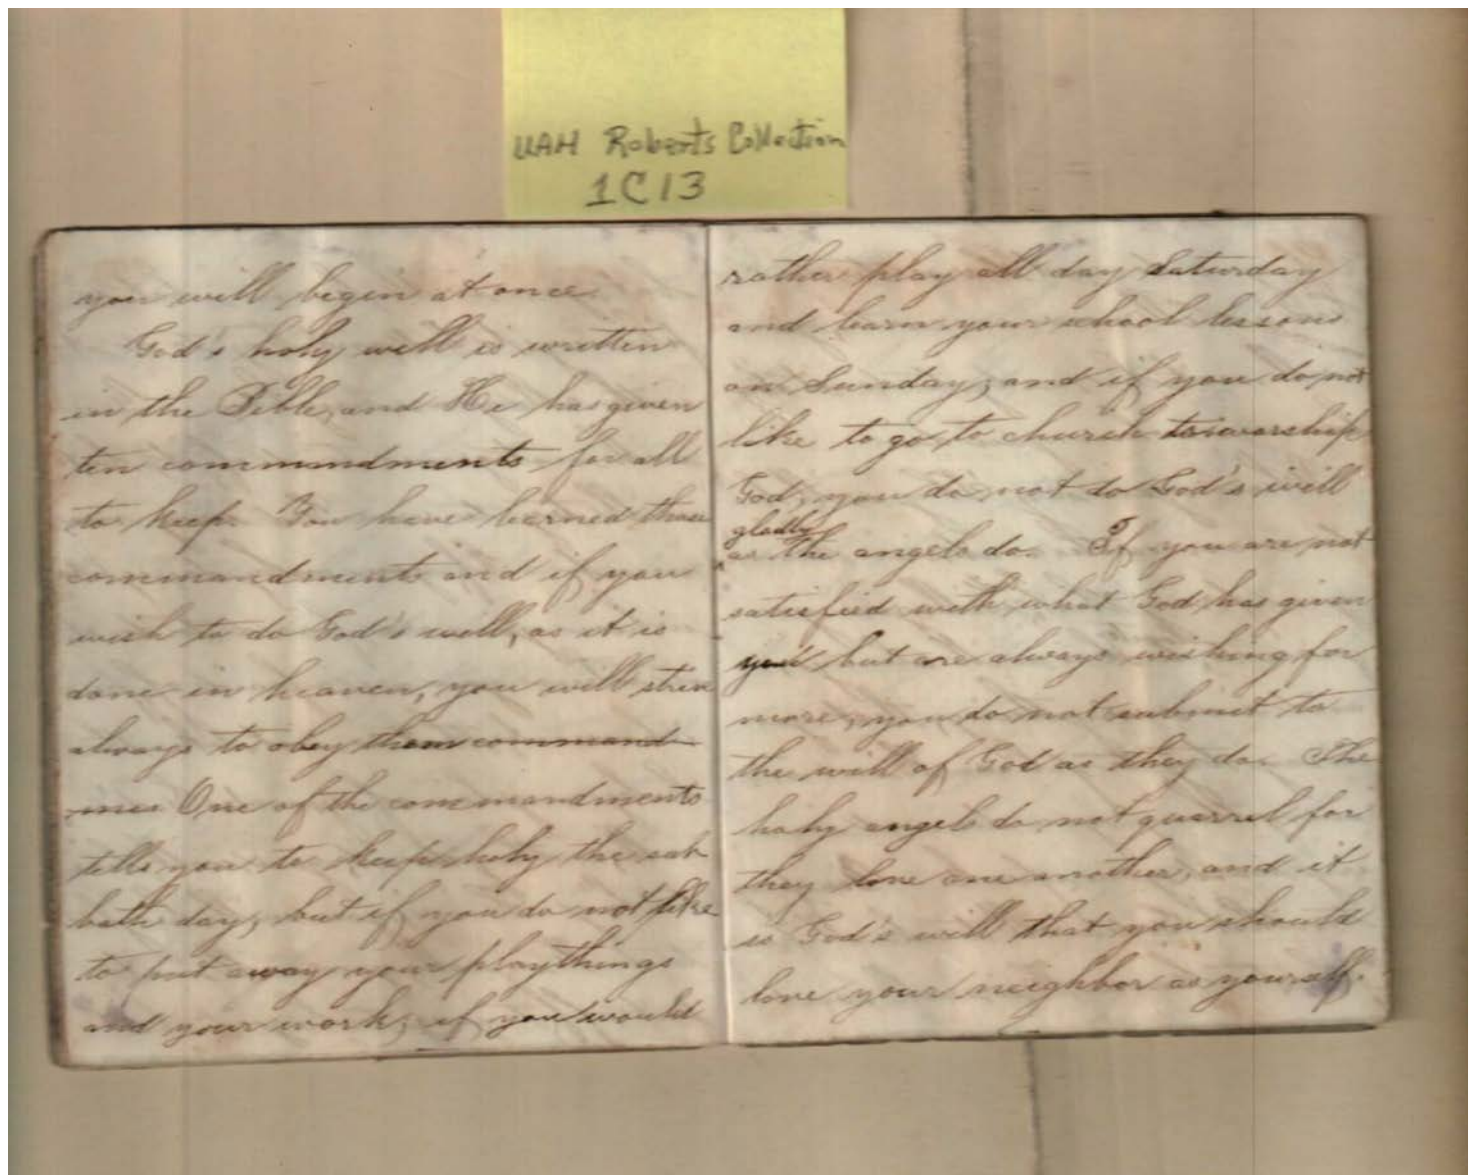 UAH Roberts Collection
1C13
you will begin at once.
God's holy will is written
in the Bible, and He has given
ten commandments for all
to keep. You have learned these
commandments and if you
wish to do God's will, as it is
done in heaven, you will strive
always to obey them command-
mes One of the commandments
tells you to keep holy the sab
bath day, but if you do not like
to put away your playthings
and your work, if you would
rather play all day Saturday
and learn your school lessons
on Sunday, and if you do not
like to go to church to worship
God, you do not do God's will
gladly
as the angels do. If you are not
satisfied with what God has given
you but are always wishing for
more, you do not submit to
the will of God as they do. The
holy angels do not quarrel for
they love one another, and it
is God's will that you should
love your neighbor as yourself.